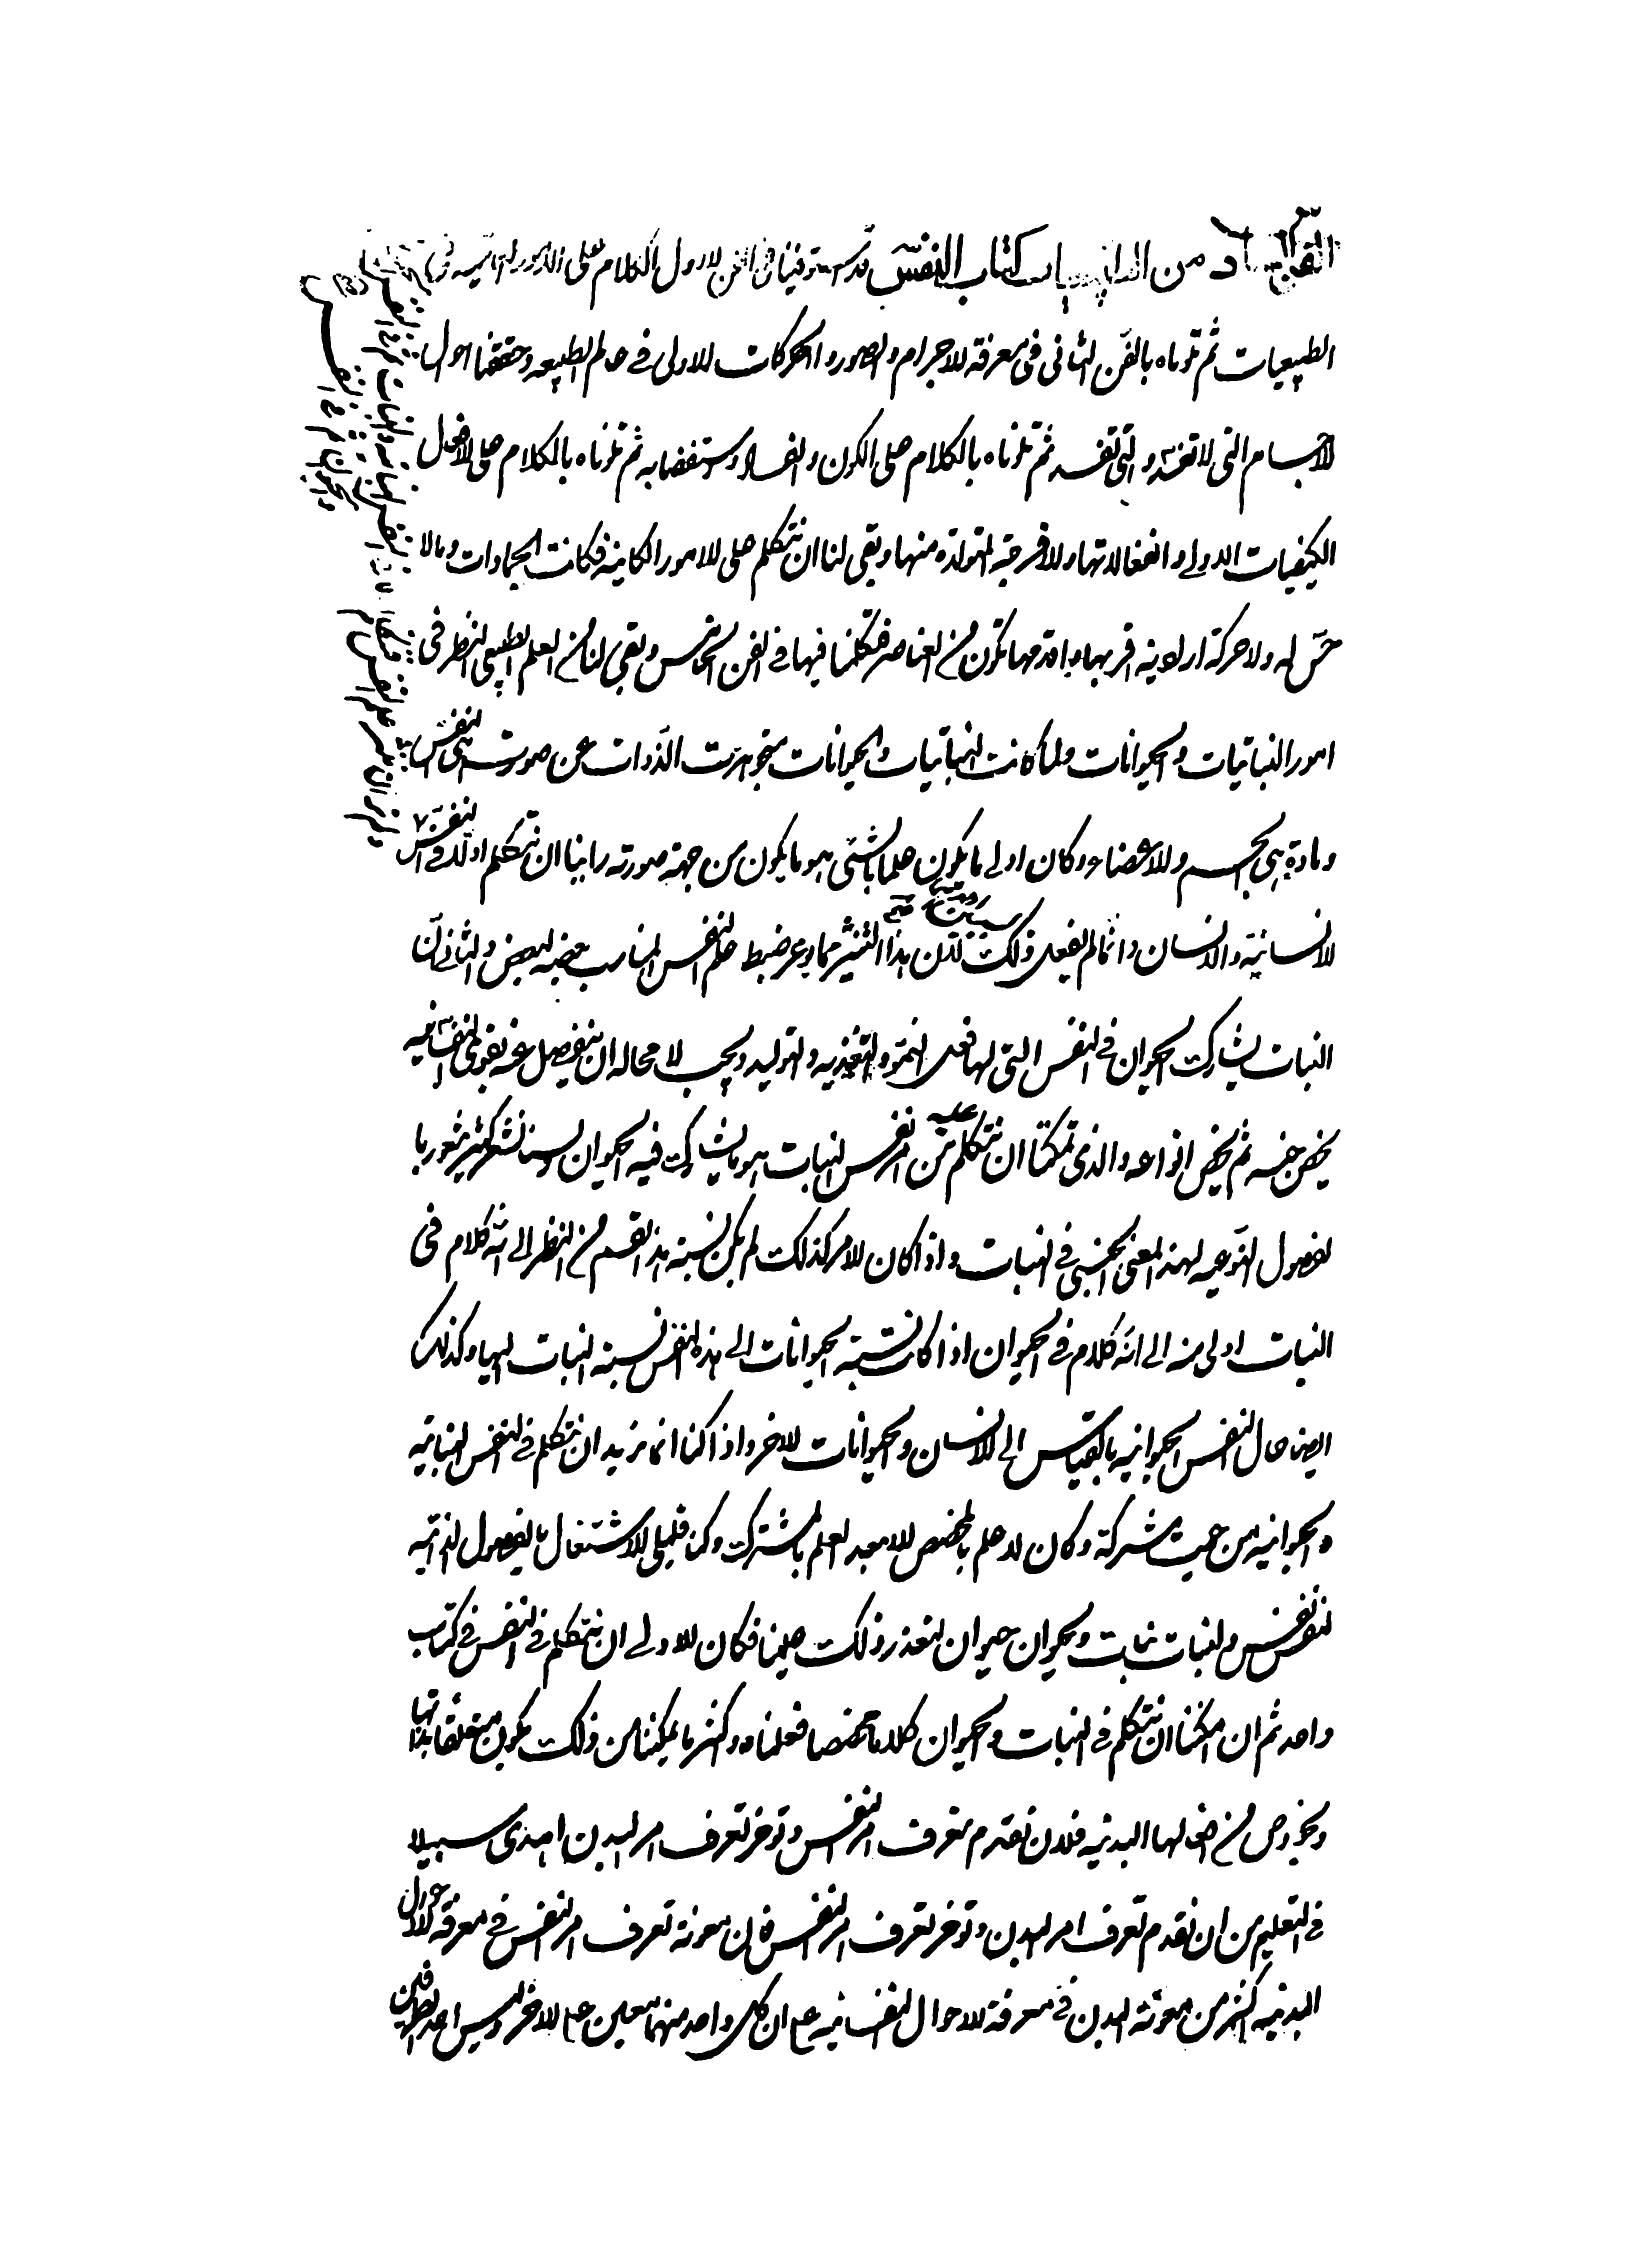 الفن السادس من الطبيعيات كتاب النفس قد استوفينا فى الفن الاول الكلام على الامور العامية فى
الطبيعيات ثم تلوناه بالفن الثانى فى معرفة الاجرام والصور والحركات الاولى فى عالم الطبيعه وحققنا احوال
الاجسام التى لا تفسد والتى تفسد ثم تلوناه بالكلام على الكون والفساد واسطقساته ثم تلوناه بالكلام على افعال
الكيفيات الاولى وانفعالاتها والامزجة المتولدة منها وبقى لنا ان نتكلم على الامور الكاينه فكانت الجمادات وما لا
حس له ولا حركة ارادية اقربها واقدمها تكون من العناصر فتكلمنا فيها فى الفن الخامس وبقى لنا من العلم الطبيعى النظر فى
امور النباتيات والحيوانات ولما كانت النباتيات والحيوانات متجوهرت الذوات عن صورة هى النفس
ومادة هى الجسم والاعضاء وكان اولى ما يكون علما بالشئ هو ما يكون من جهة صورته راينا ان نتكلم اولا فى النفس
الانسانية والانسان وانما لم نفعل ذلك لسببين احدهما ان هذا التبتير مما يوعر ضبط علم النفس المناسب بعضه لبعض والثانى ان
النبات يشارك الحيوان فى النفس التى لها فعل النمو والتغذيه والتوليد ويجب لا محاله ان ينفصل عنه بقوى نفسانيه
يخص جنسه ثم يخص انواعه والذى يمكننا ان نتكلم عليه من امر نفس النبات هو ما يشارك فيه الحيوان ولسنا نشعر كثير شعور با
لفصول النوعيه لهذا المعنى الجنسى فى النبات واذا كان الامر كذلك لم يكن نسبة هذا القسم من النظر الى انه كلام فى
النبات اولى منه الى انه كلام فى الحيوان اذا كانت نسبة الحيوانات الى هذه النفس نسبة النبات اليها وكذلك
ايضا حال النفس الحيوانيه بالقياس الى الانسان والحيوانات الاخر واذا كنا انما نريد ان نتكلم فى النفس النباتيه
والحيوانيه من حيث مشتركة وكان لا علم بالمخصص الا بعد العلم بالمشترك وكنا قليلى الاشتغال بالفصول الذاتيه
لنفس نفس ولنبات نبات ولحيوان حيوان لتعذر ذلك علينا فكان الاولى ان نتكلم فى النفس فى كتاب
واحد ثم ان امكننا ان نتكلم فى النبات والحيوان كلاما مخصصا فعلناه واكثر ما يمكننا من ذلك يكون متعلقا بابدانها
وبخواص من افعالها البدنيه فلان نقدم تعرف امر النفس ونوخر تعرف امر البدن اهدى سبيلا
فى التعليم من ان نقدم تعرف امر البدن ونوخر تعرف امر النفس فان معونة تعرف امر النفس فى معرفة الاحوال
البدنيه اكثر من معونة البدن فى معرفة الاحوال النفسانيه على ان كل واحد منهما معين على الاخر وليس احد الطرفين